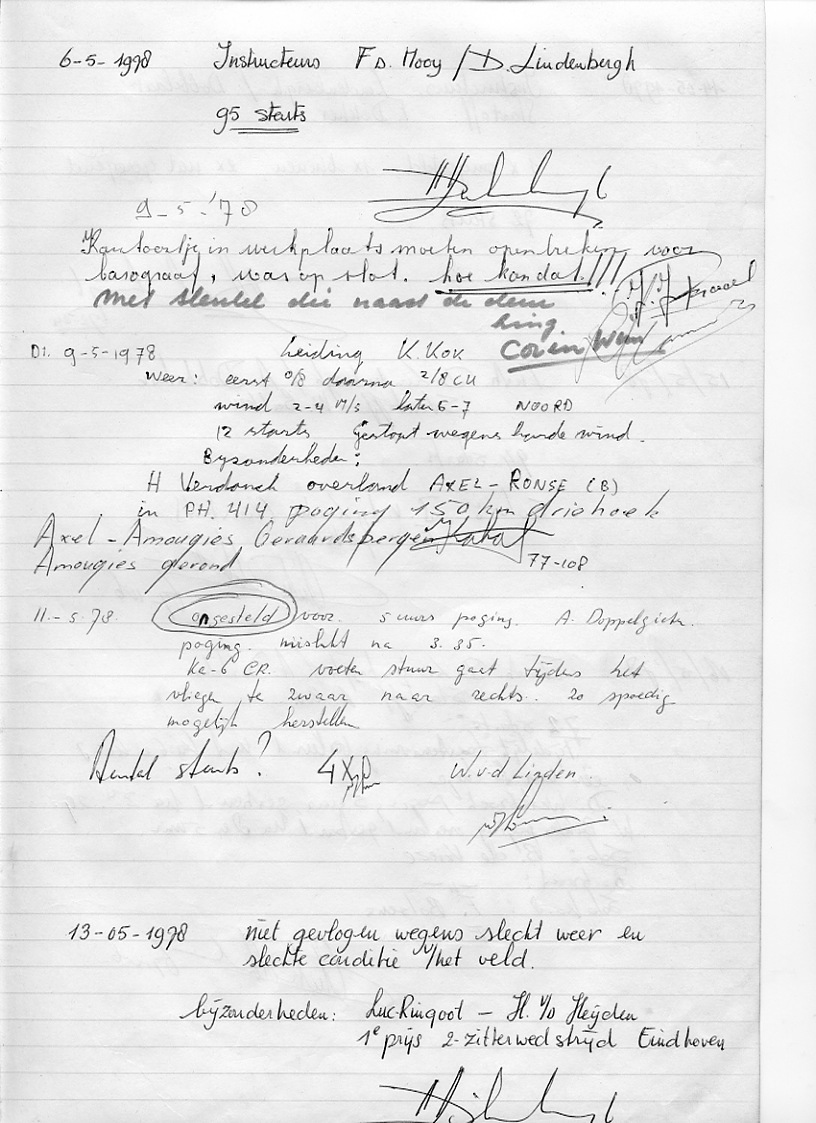 6-5-1978 Instructeurs F D. Mooy / D. Lindenbergh
95 starts
9-5-'78
Kantoortje in werkplaats moeten openbreken voor
barograaf, was op slot. hoe kan dat!!!!
Met sleutel die naast de deur
hing.
Cor in
DI. 9-5-1978 Leiding K. Kok
Weer: eerst 0/8 daarna 2/8 CU
wind 2-4 M/S later 6-7 NOORD
12 starts Gestopt wegens harde wind.
Byzonderheden:
H Verdonck overland AXEL-RONSE (B)
in PH. 414 poging 150 km driehoek
Axel - Amougies Geraardsbergen
Amougies gerond 77-108
11-5-78. ongesteld voor 5 uurs poging. A. Doppelgieter.
poging mislukt na 3.35.
Ka-6 CR. voeten stuur gaat tijdens het
vliegen te zwaar naar rechts. zo spoedig
mogelijk herstellen
Aantal starts? 4X W.v.d Linden.
13-05-1978 niet gevlogen wegens slecht weer en
slechte conditie v/het veld.
bijzonderheden: Luc Ringoot - H. v/d Heijden
1e prijs 2-zitterwedstrijd Eindhoven